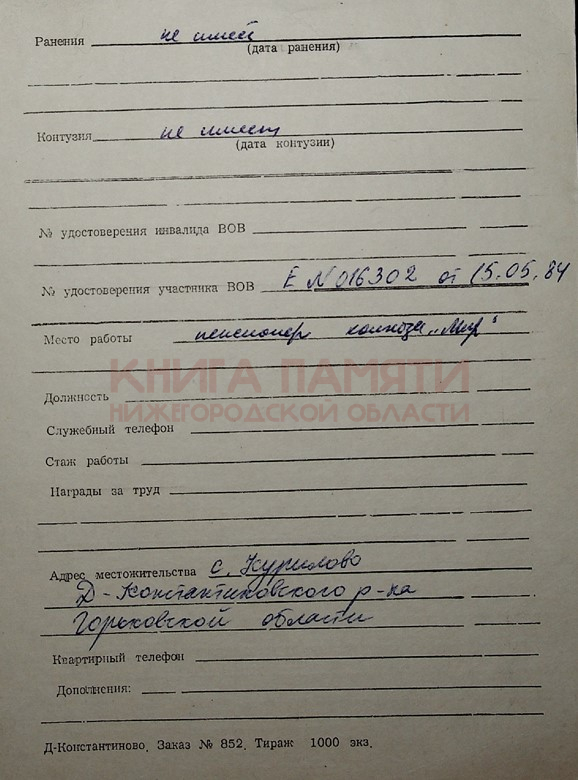 Ранения не имеет
(дата ранения)
Контузия не имеет
(дата контузии)
№ удостоверения инвалида ВОВ
№ удостоверения участника ВОВ Е №016302 от 15.05.84
Место работы пенсионер колхоза „Мир"
КНИГА ПАМЯТИ
Должность
НИЖЕГОРОДСКОЙ ОБЛАСТИ
Служебный телефон
Стаж работы
Награды за труд
Адрес местожительства с. Курилово
Д-Константиновского р-на
Горьковской области
Квартирный телефон
Дополнения:
Д-Константиново, Заказ № 852. Тираж 1000 экз.